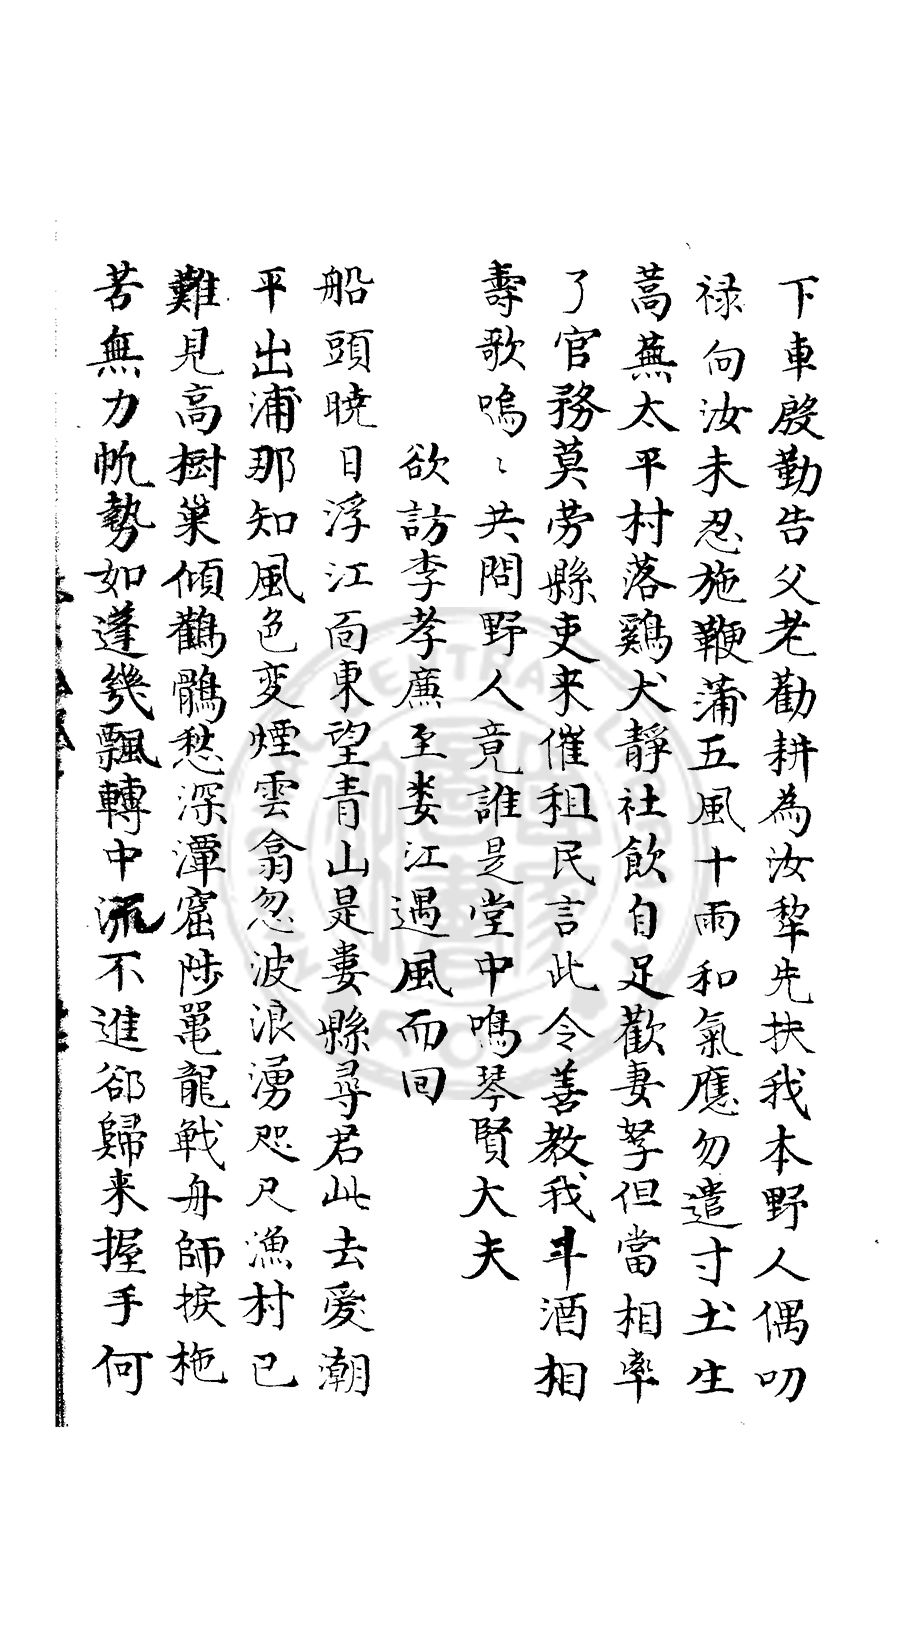 下車殷勤告父老勸耕為汝犂先扶我本野人偶叨
禄向汝未忍施鞭蒲五風十雨和氣應勿遣寸土生
蒿蕪太平村落鷄犬靜社飲自足歡妻孥但當相率
了官務莫劳縣吏来催租民言此令善教我斗酒相
壽歌嗚〻共問野人竟誰是堂中鳴琴賢大夫
欲訪李孝廉至娄江遇風而回
船頭曉日浮江面東望青山是婁縣尋君此去爱潮
平出浦那知風色变煙雲翕忽波浪湧咫尺漁村已
難見高樹巢傾鸛鶻愁深潭窟陟黿龍戰舟師捩柁
苦無力帆勢如蓬幾飄轉中流不進郤歸来握手何